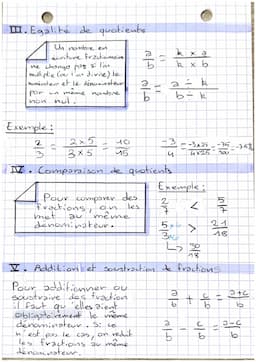 III. Egalité de quotients
Un nombre en
écriture fractionnaire
ne change pas si l'on
multiplie (ou l'on divise) le
numérateur et le dénominateur
par un même nombre
non nul.
a/b = k × a / k × b
a/b = a ÷ k / b ÷ k
Exemple :
2/3 = 2×5/3×5 = 10/15
-3/4 = -3×25/4×25 = -75/100
IV. Comparaison de quotients
Pour comparer des
fractions, on les
met au même
dénominateur.
Exemple :
2/7 < 5/7
5/3 > 21/18
↳ 30/18
V. Addition et soustraction de fractions
Pour additionner ou
soustraire des fraction
il faut qu'elles aient
obligatoirement le même
dénominateur. Si ce
n'est pas le cas, on réduit
les fractions au même
dénominateur.
a/b + c/b = a+c/b
a/b - c/b = a-c/b